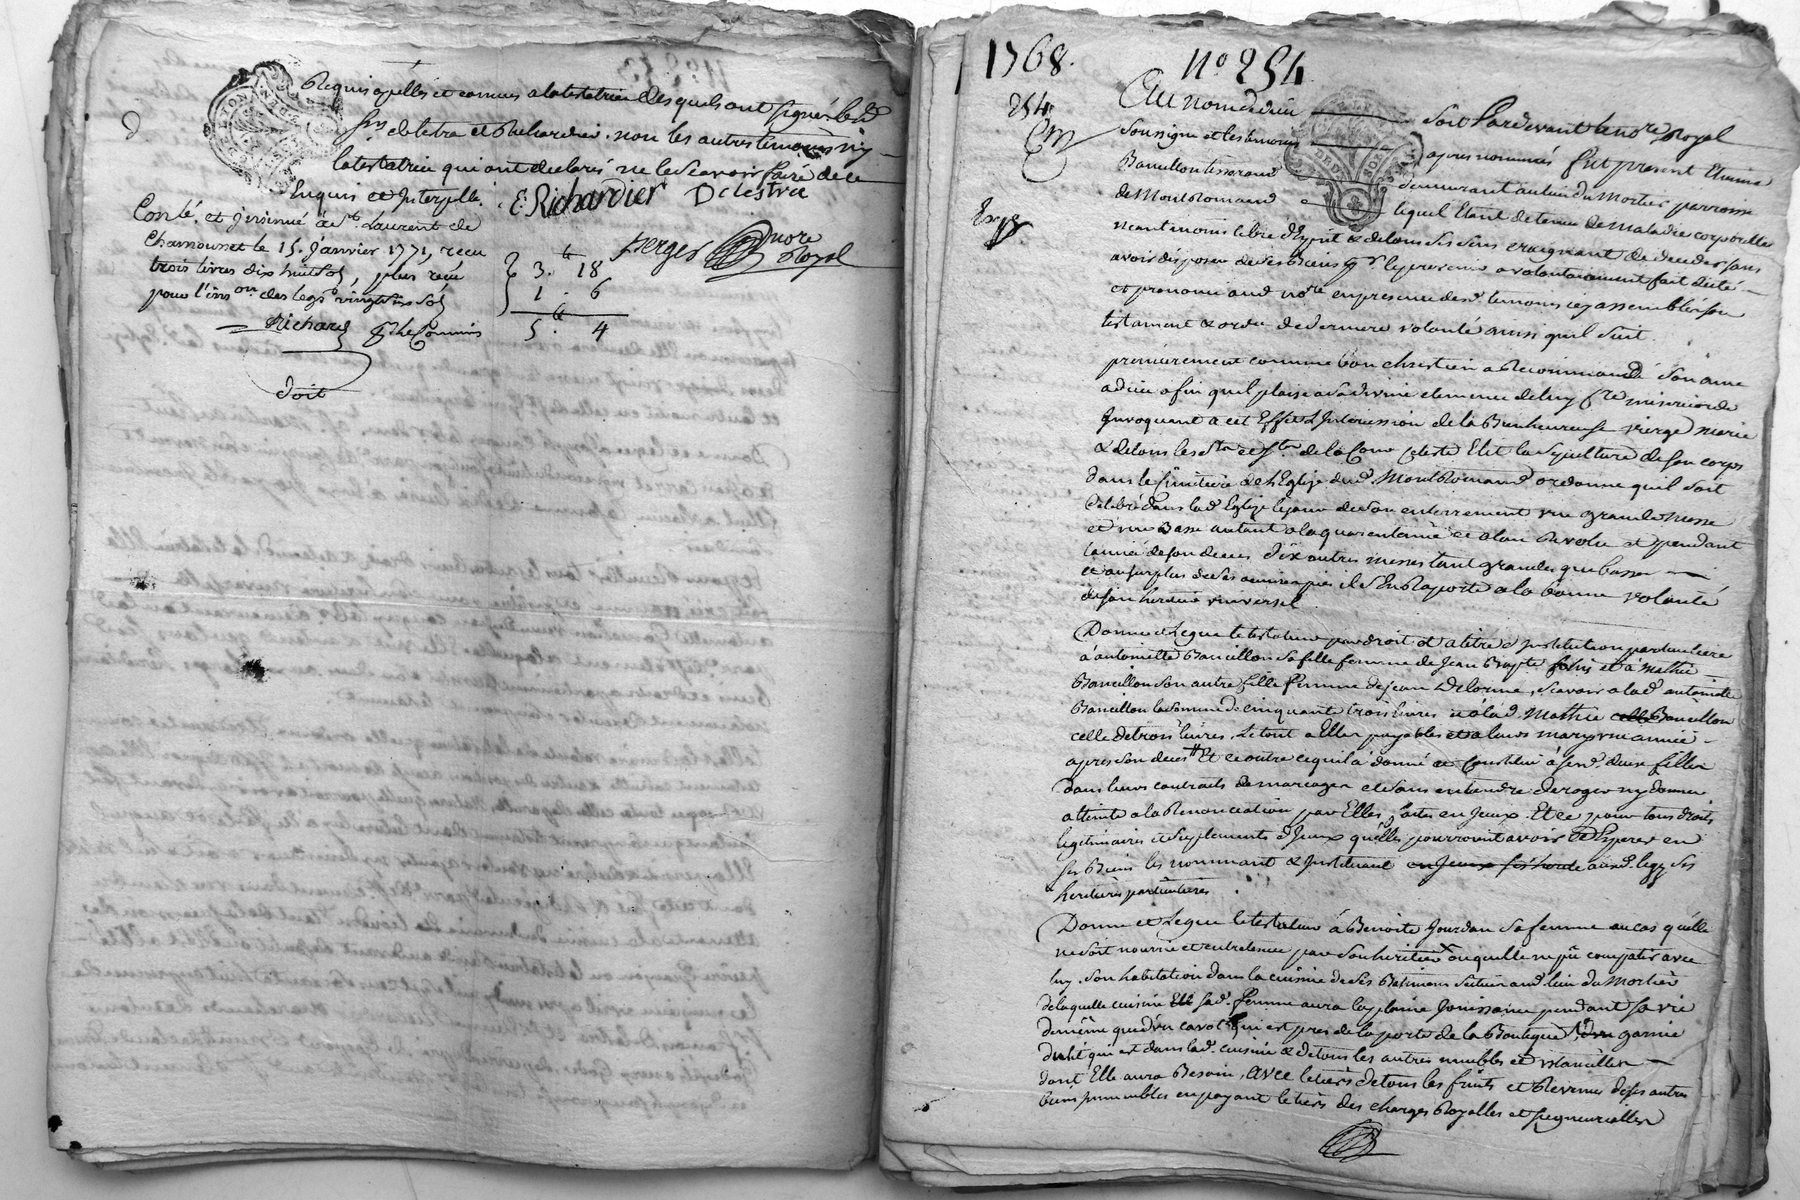 Requis apellés et connus a la testatrice desquels ont signé led
Srs delestra et Richardier. non les autres temoins ny
la testatrice qui ont declarés ne le scavoir faire de ce
Enquis et Interpellé. E: Richardier Delestra
Conlé, et jnsinué a St. Laurent de
Chamousset le 15. Janvier 1771, recu
trois livres dix huit sols, plus recu
pour l'inson. des legs vingt six sols
Richard
Berger nore Royal
3. 18
1. 6
5. 4
doit
1768. No. 254.
254
Au nom de dieu soit Pardevant le nore Royal
soussigné et les temoins apres nommés fut present Etienne
Bancillon tisserand demeurant au lieu du Mortier parroisse
de Montromand lequel Etant detenu de maladie corporelle
Exp
neantmoins libre d'Esprit & de tous ses sens craignant de deceder sans
avoir disposer de ses Biens pr. les prevenir a volontairement fait dicté
et prononcé aud nore en presence desd. temoins cy assemblés son
testament & ordre de derniere volonté ainsi quil suit.
premierement comme bon chrestien a Recommandé son ame
a dieu afin quil plaise a sa divine clemence de luy fre misericorde
Jnvoquant a cet Effet L'Intercession de la Bienheureuse vierge marie
& de tous les Sts et Stes de la Cour Celeste Elit la sepulture de son corps
dans le simitiere de l'Eglise dud. Montromand ordonne quil soit
Celebré dans lad. Eglise le jour de son enterrement une grande messe
et une Basse autant a la quarentaine et a l'an Revolu et pendant
l'année de son deces dix autres messes tant grandes que basses
et au surplus de ses oeuvres pies il s'En Raporte a la bonne volonté
de son heritier universel
Donne et Legue le testateur par droit et a titre d'Institution particuliere
à antoinette Bancillon sa fille femme de Jean Bapte et à Mathie
Bancillon son autre fille femme de jean Delorme, scavoir a lad. antoinette
Bancillon la somme de cinquante trois livres et à lad. Mathie celle Bancillon
celle de trois livres. Le tout a Elles payables et a leurs marys une année
apres son deces Et ce outre ce quil a donné et Constitué à sesd. deux filles
dans leurs contrats de mariages et sans entendre deroger ny donner
atteinte a la Renonciation par Elles faites en jceux. Et ce pour tous droits
legitimaires et suplements d'jceux qu'elles pourroint avoir et Esperer en
ses Biens les nommant & Instituant en jceux aud. legs ses
heritieres particulieres.
Donne et Legue le testateur à Benoite Jourdan sa femme au cas qu'elle
ne soit nourrie et entretenue par son heritier ou quelle ne put compatir avec
luy. son habitation dans la cuisine de ses Batimens scitué aud. lieu du Mortier
de laquelle cuisine sad. femme aura la pleine Jouissance pendant sa vie
de même que qui est pres de la porte de la Boutique, garnie
du lit qui est dans lad. cuisine & de tous les autres meubles et
dont Elle aura Besoin, avec le tiers de tous les fruits et Revenus de ses autres
biens jmmeubles en payant le tiers des charges Royalles et seigneurialles